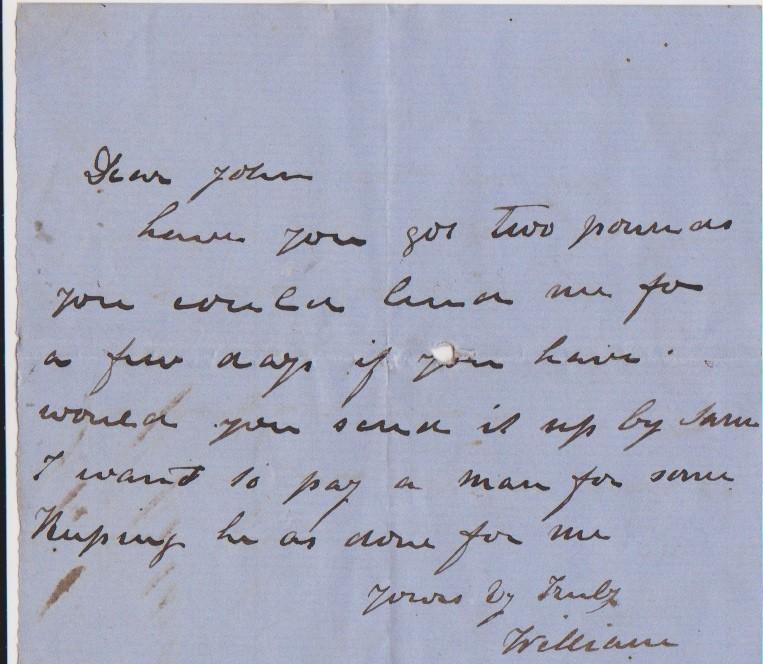 Dear John
have you got two pounds
you could lend me for
a few days if you have.
would you send it up by Sam
I want to pay a man for some
Keeping he as done for me
yours vy Truly
William